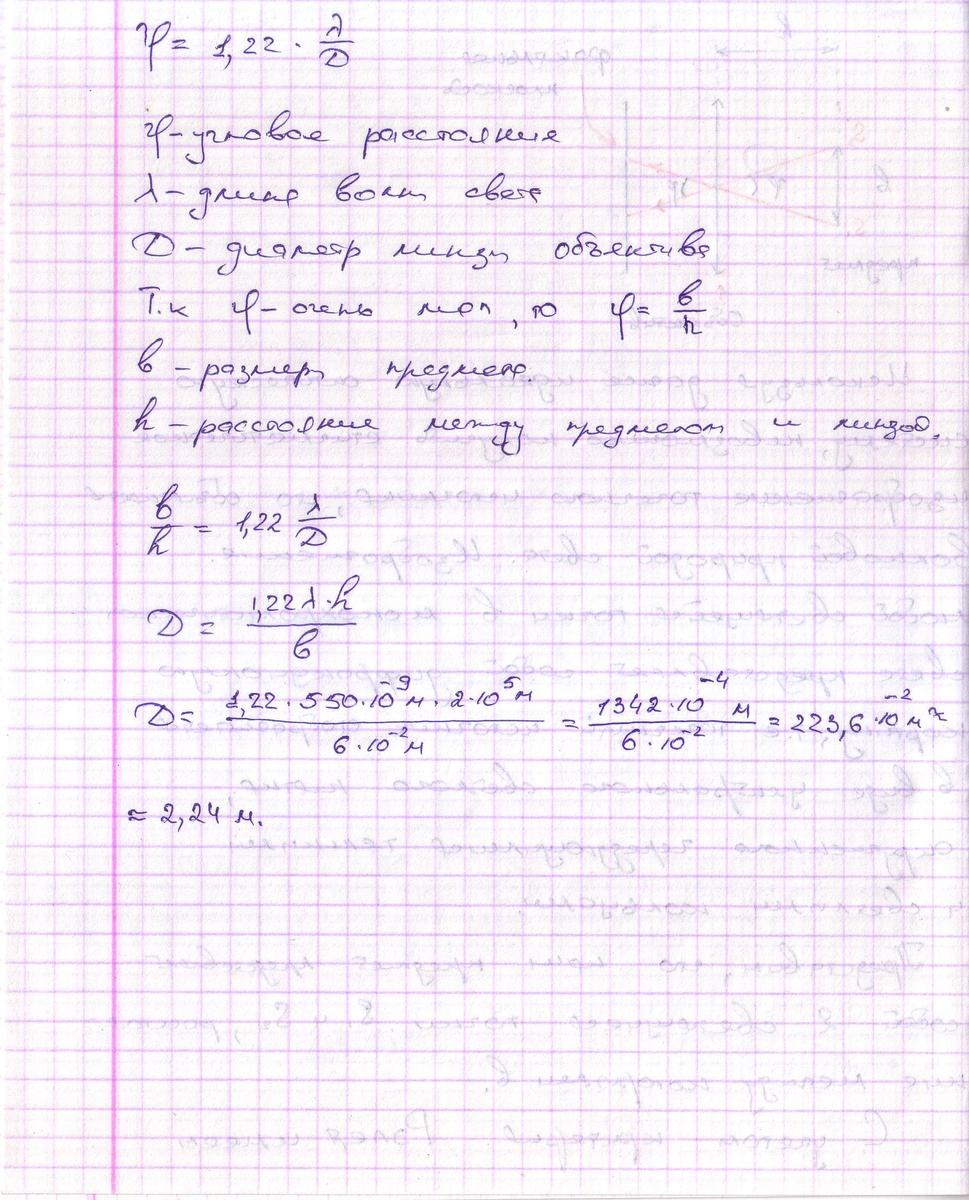 φ = 1,22 · λ/D
φ – угловое расстояние
λ – длина волны света
D – диаметр линзы объектива
Т.к φ – очень мал, то φ = b/h
b – размеры предмета.
h – расстояние между предметом и линзой.
b/h = 1,22 λ/D
D = 1,22 λ·h/b
D = 1,22 · 550·10⁻⁹ м · 2·10⁵ м / 6·10⁻² м = 1342·10⁻⁴ м / 6·10⁻² = 223,6·10⁻² м ≈
≈ 2,24 м.